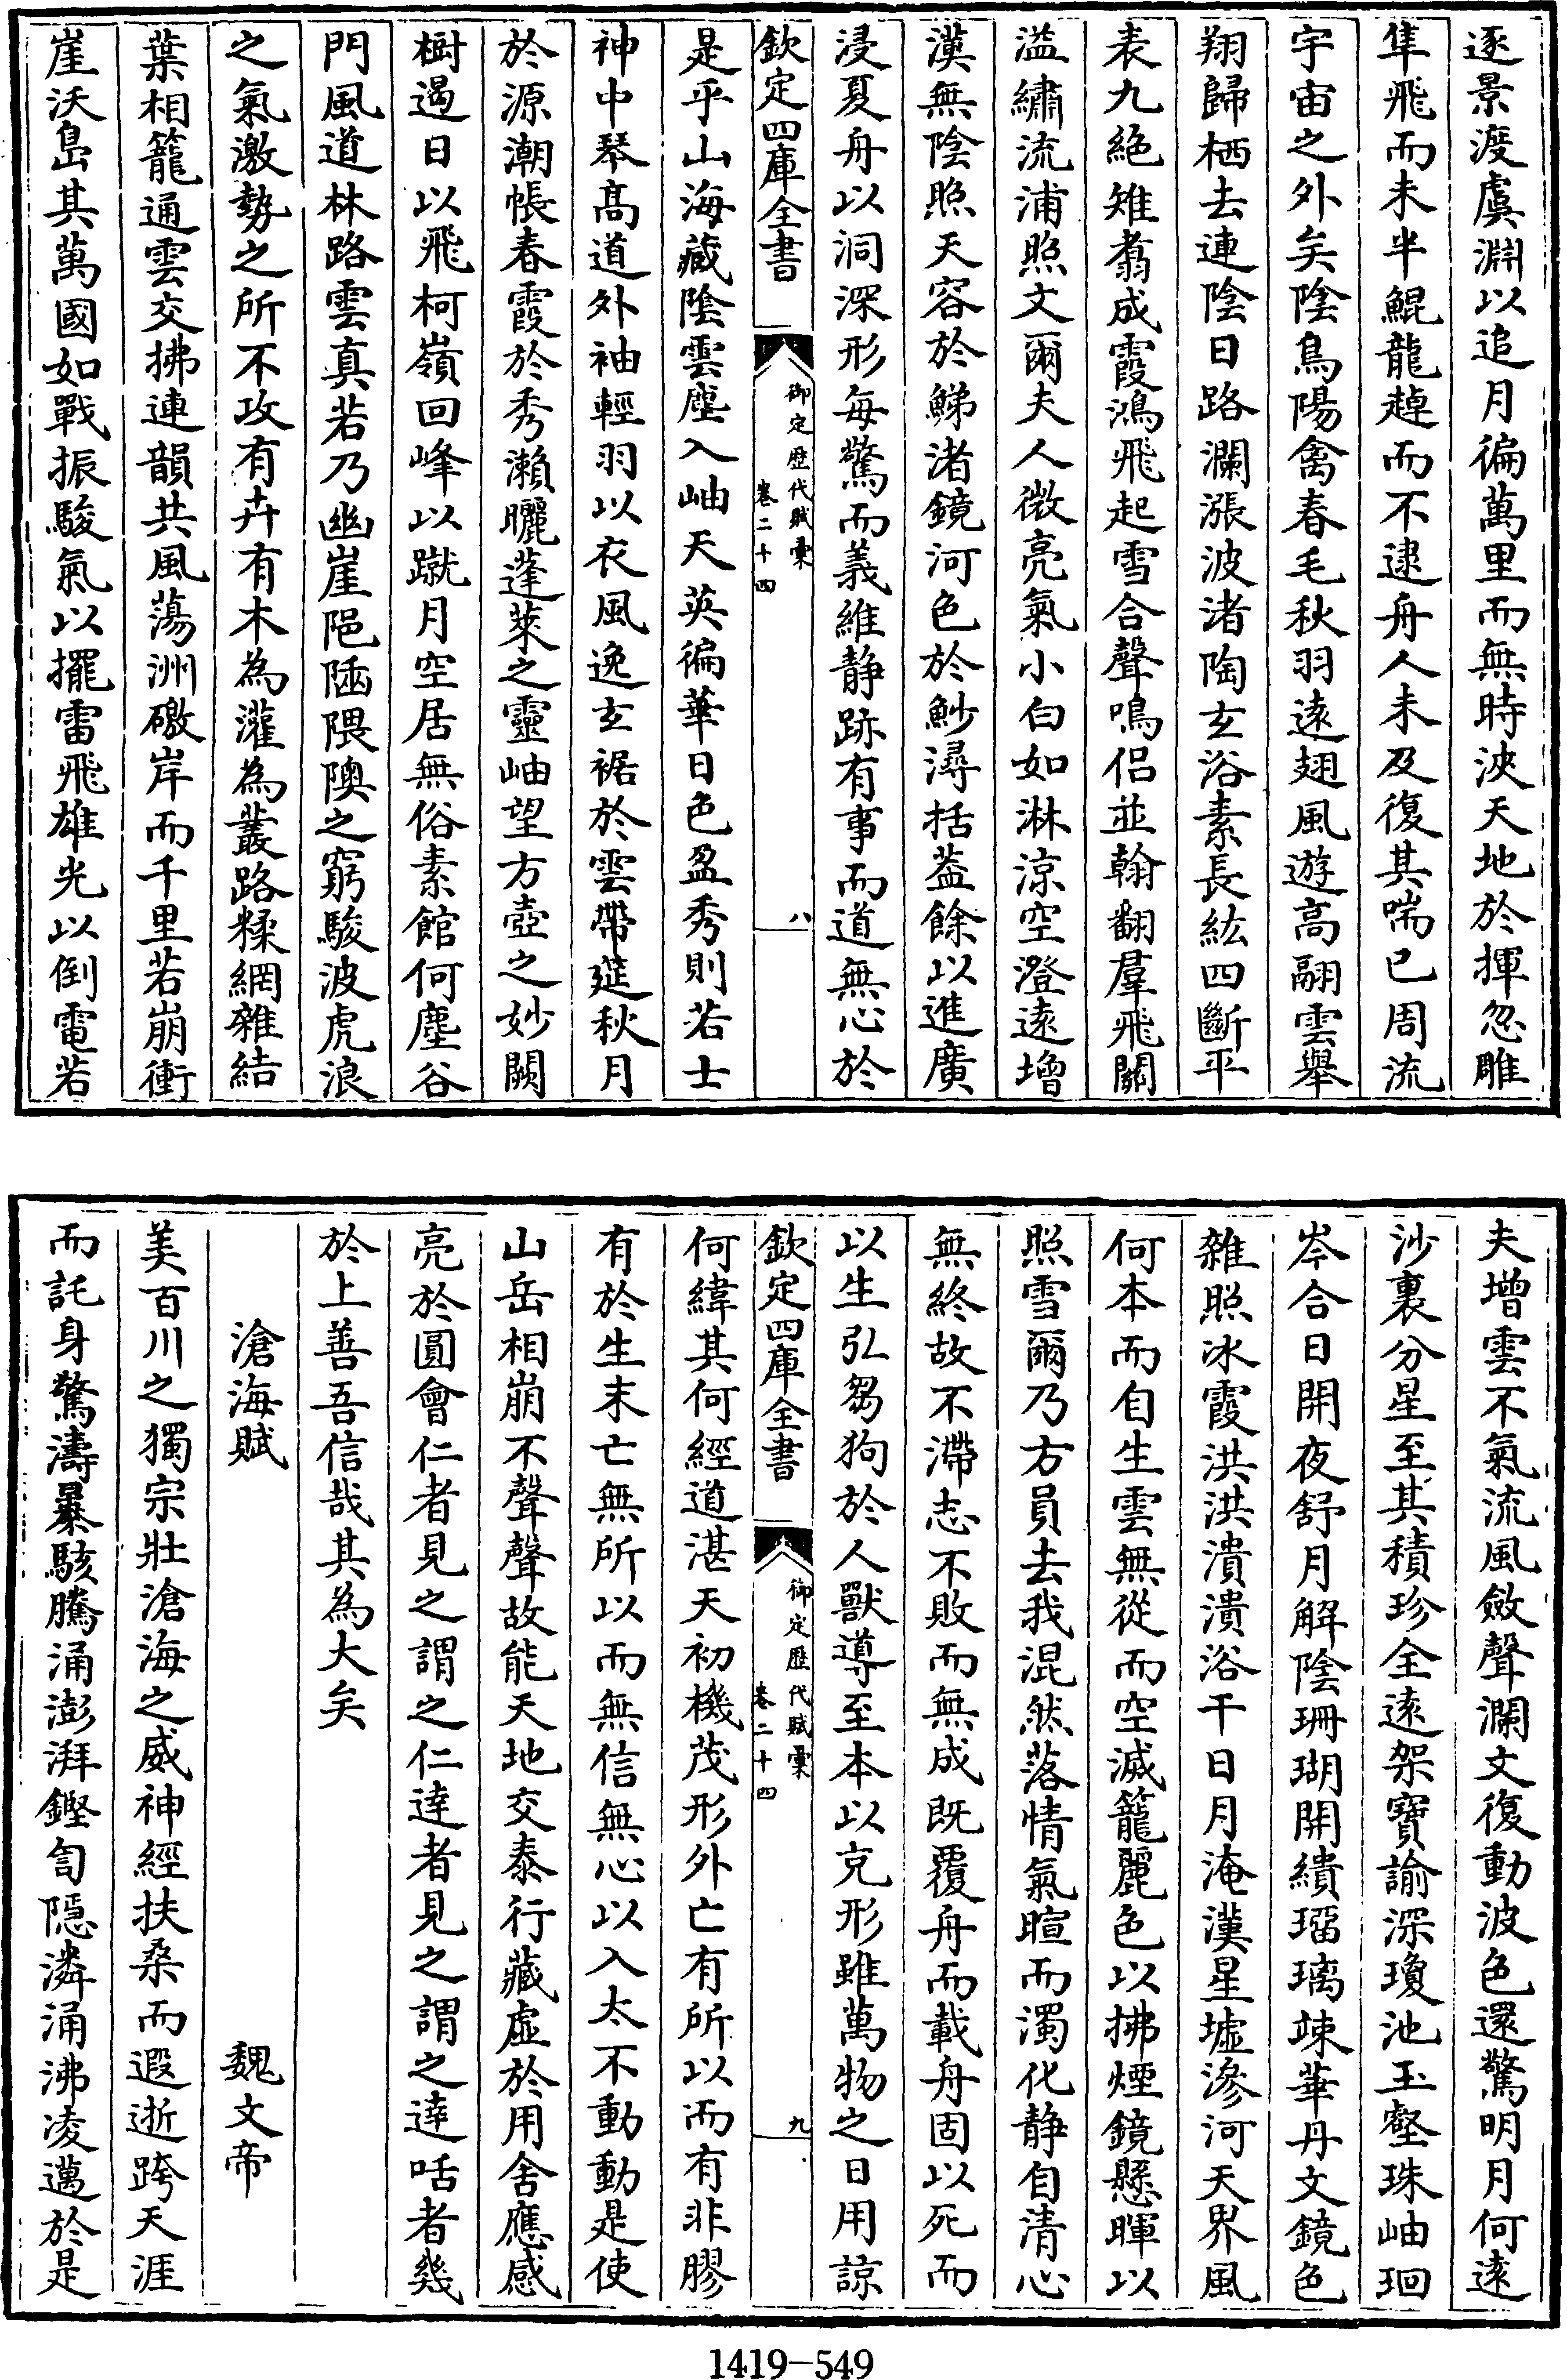 逐景渡虞淵以追月徧萬里而無時浹天地於揮忽雕
隼飛而未半鯤龍趠而不逮舟人未及復其喘已周流
宇宙之外矣陰鳥陽禽春毛秋羽遠翅風遊高翮雲舉
翔歸栖去連陰日路瀾漲波渚陶玄浴素長紘四斷平
表九絶雉翥成霞鴻飛起雪合聲鳴侣並翰翻羣飛關
溢繡流浦照文爾夫人微亮氣小白如淋凉空澄遠增
漢無陰照天容於鮷渚鏡河色於魦潯括葢餘以進廣
浸夏舟以洞深形每驚而義維静跡有事而道無心於
欽定四庫全書
御定歴代賦彙
卷二十四
八
是乎山海藏陰雲塵入岫天英徧華日色盈秀則若士
神中琴髙道外袖輕羽以衣風逸玄裾於雲帶筵秋月
於源潮帳春霞於秀瀨曬蓬萊之靈岫望方壺之妙闕
樹遏日以飛柯嶺回峰以蹴月空居無俗素館何塵谷
門風道林路雲真若乃幽崖陿陋隈隩之窮駿波虎浪
之氣激勢之所不攻有卉有木為灌為叢路糅網雜結
葉相籠通雲交拂連韻共風蕩洲礉岸而千里若崩衝
崖沃島其萬國如戰振駿氣以擺雷飛雄光以倒電若
夫增雲不氣流風斂聲瀾文復動波色還驚明月何遠
沙裏分星至其積珍全遠架寳諭深瓊池玉壑珠岫珇
岑合日開夜舒月解陰珊瑚開繢瑠璃竦華丹文鏡色
雜照冰霞洪洪潰潰浴干日月淹漢星墟滲河天界風
何本而自生雲無從而空滅籠麗色以拂煙鏡懸暉以
照雪爾乃方員去我混然落情氣暄而濁化静自清心
無終故不滯志不敗而無成既覆舟而載舟固以死而
以生弘芻狗於人獸導至本以克形雖萬物之日用諒
欽定四庫全書
御定歴代賦彙
卷二十四
九
何緯其何經道湛天初機茂形外亡有所以而有非膠
有於生末亡無所以而無信無心以入太不動動是使
山岳相崩不聲聲故能天地交泰行藏虚於用舍應感
亮於圓會仁者見之謂之仁達者見之謂之達咶者幾
於上善吾信哉其為大矣
滄海賦
魏文帝
美百川之獨宗壯滄海之威神經扶桑而遐逝跨天涯
而託身驚濤暴駭騰涌澎湃鏗訇隱潾涌沸凌邁於是
1419-549